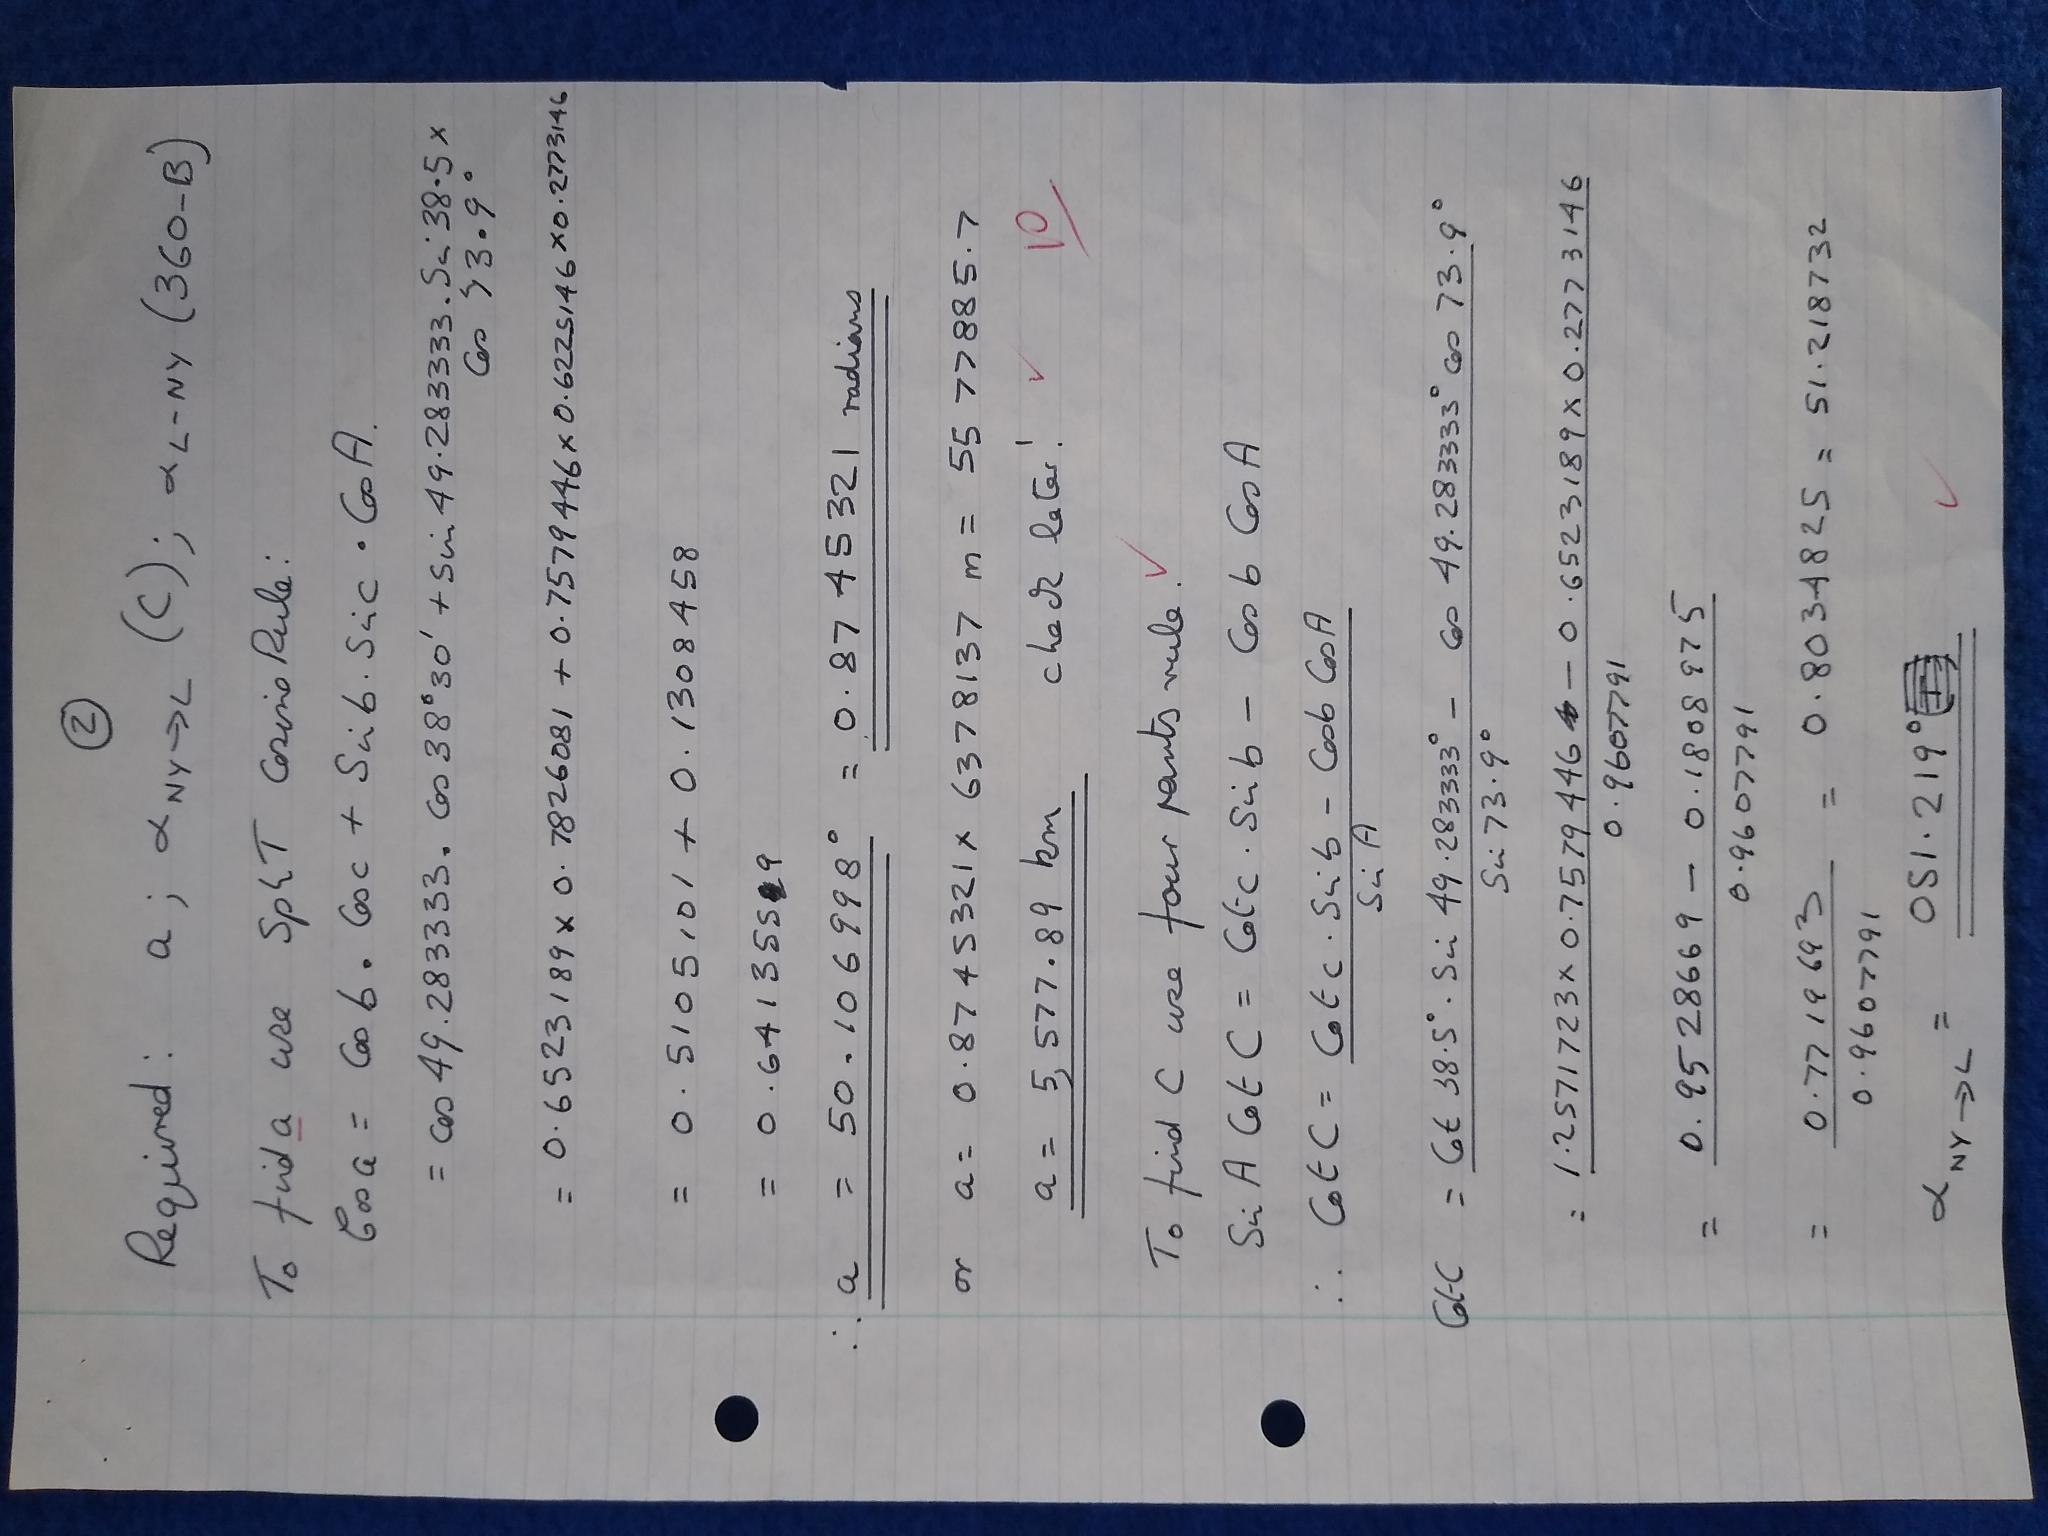 ②
Required: a; α NY→L (C); α L-NY (360-B)
To find a use SphT Cosine Rule:
Cos a = Cos b. Cos c + Sin b. Sin c. Cos A.
= Cos 49.283333. Cos 38°30' + Sin 49.283333. Sin 38.5 x
Cos 73.9°
= 0.6523189 x 0.7826081 + 0.7579446 x 0.6225146 x 0.2773146
= 0.5105101 + 0.1308458
= 0.6413559
∴ a = 50.106998° = 0.8745321 radians
or a = 0.8745321 x 6378137 m = 5577885.7
a = 5,577.89 km check later! ✓ 10
To find C use four parts rule. ✓
Sin A Cot C = Cot c. Sin b - Cos b Cos A
∴ Cot C = Cot c. Sin b - Cos b Cos A
Sin A
Cot C = Cot 38.5°. Sin 49.283333° - Cos 49.283333° Cos 73.9°
Sin 73.9°
= 1.2571723 x 0.7579446 - 0.6523189 x 0.2773146
0.9607791
= 0.9528669 - 0.1808975
0.9607791
= 0.7719693 = 0.8034825 = 51.218732
0.9607791
α NY→L = 051.219° ✓